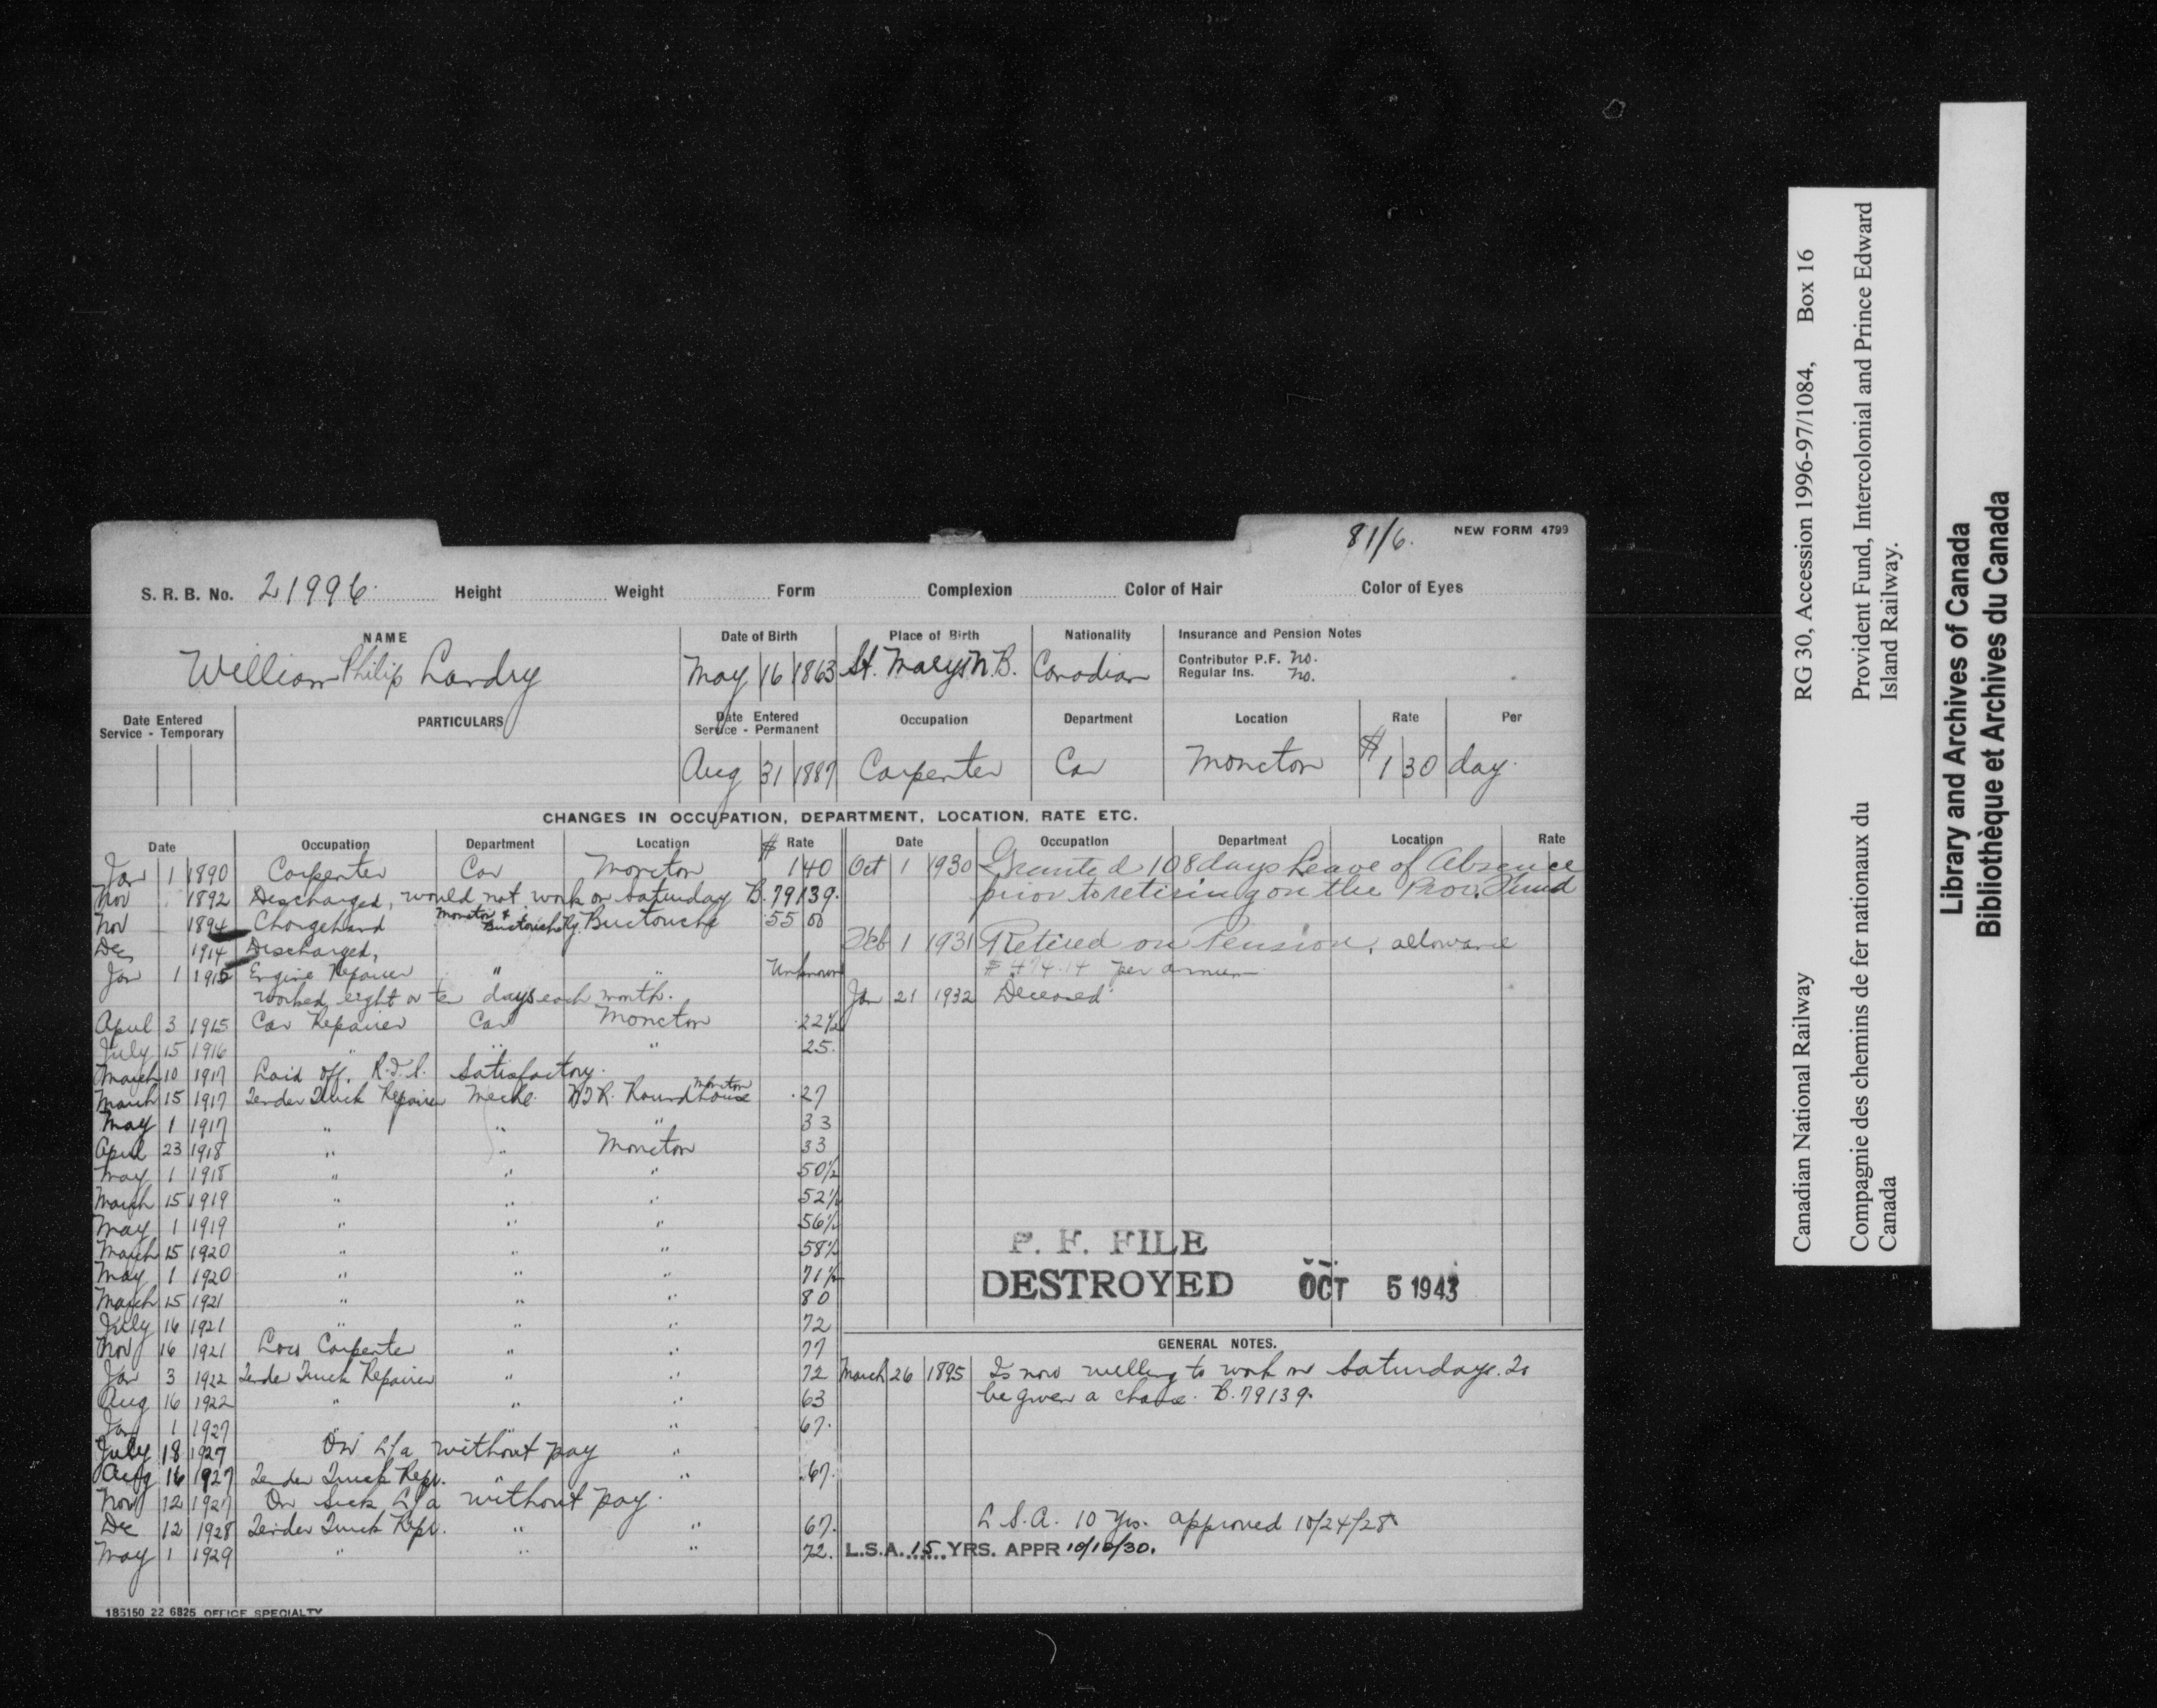 81/6.
NEW FORM 4799
S. R. B. No. 21996. Height Weight Form Complexion Color of Hair Color of Eyes
NAME Date of Birth Place of Birth Nationality Insurance and Pension Notes
William Philip Landry May 16 1863 St. Marys N.B. Canadian
Contributor P.F. no.
Regular Ins. no.
Date Entered Service - Temporary PARTICULARS Date Entered Service - Permanent Occupation Department Location Rate Per
Aug 31 1887 Carpenter Car Moncton $1 30 day.
CHANGES IN OCCUPATION, DEPARTMENT, LOCATION, RATE ETC.
Date Occupation Department Location $ Rate
Jan 1 1890 Carpenter Car Moncton 140
Nov 1892 Discharged, would not work on Saturday B.79139.
Nov 1894 Chargehand Moncton & Buctouche Ry. Buctouche 55 00
Dec 1914 Discharged,
Jan 1 1915 Engine Repairer " " Unknown
Worked eight or ten days each month.
April 3 1915 Car Repairer Car Moncton .22½
July 15 1916 " " " 25.
March 10 1917 Laid off. R.I.S. Satisfactory.
March 15 1917 Tender Truck Repairer Mechl. Roundhouse Moncton .27
May 1 1917 " " " 33
April 23 1918 " " Moncton 33
May 1 1918 " " " 50½
March 15 1919 " " " 52½
May 1 1919 " " " 56½
March 15 1920 " " " 58½
May 1 1920 " " " 71½
March 15 1921 " " " 80
July 16 1921 " " " 72
Nov 16 1921 Loco Carpenter " " 77
Jan 3 1922 Tender Truck Repairer " " 72
Aug 16 1922 " " " 63
Jan 1 1927 " " " 67.
July 18 1927 On L/a without pay "
Aug 16 1927 Tender Truck Repr. " " .67.
Nov 12 1927 On Sick L/a without pay.
Dec 12 1928 Tender Truck Repr. " " 67.
May 1 1929 " " " 72.
185150 22 6825 OFFICE SPECIALTY
Date Occupation Department Location Rate
Oct 1 1930 Granted 108 days Leave of Absence
prior to retiring on the Prov. Fund
Feb 1 1931 Retired on Pension, allowance
$ 474.14 per annum
Jan 21 1932 Deceased
P. F. FILE
DESTROYED OCT 5 1943
GENERAL NOTES.
March 26 1895 Is now willing to work on Saturdays. To
be given a chance. B.79139.
L.S.A. 10 Yrs. approved 10/24/28
L.S.A. 15 YRS. APPR 10/10/30.
Canadian National Railway RG 30, Accession 1996-97/1084, Box 16
Compagnie des chemins de fer nationaux du Canada
Provident Fund, Intercolonial and Prince Edward Island Railway.
Library and Archives of Canada
Bibliothèque et Archives du Canada